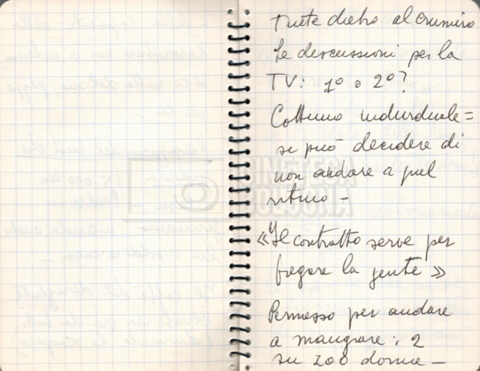 Tutte dietro al crumiro
Le discussioni per la
TV: 1º o 2º?
Cottimo individuale =
si può decidere di
non andare a quel
ritmo –
«Il contratto serve per
fregare la gente»
Permesso per andare
a mangiare: 2
su 200 donne –
CINETECA
BOLOGNA